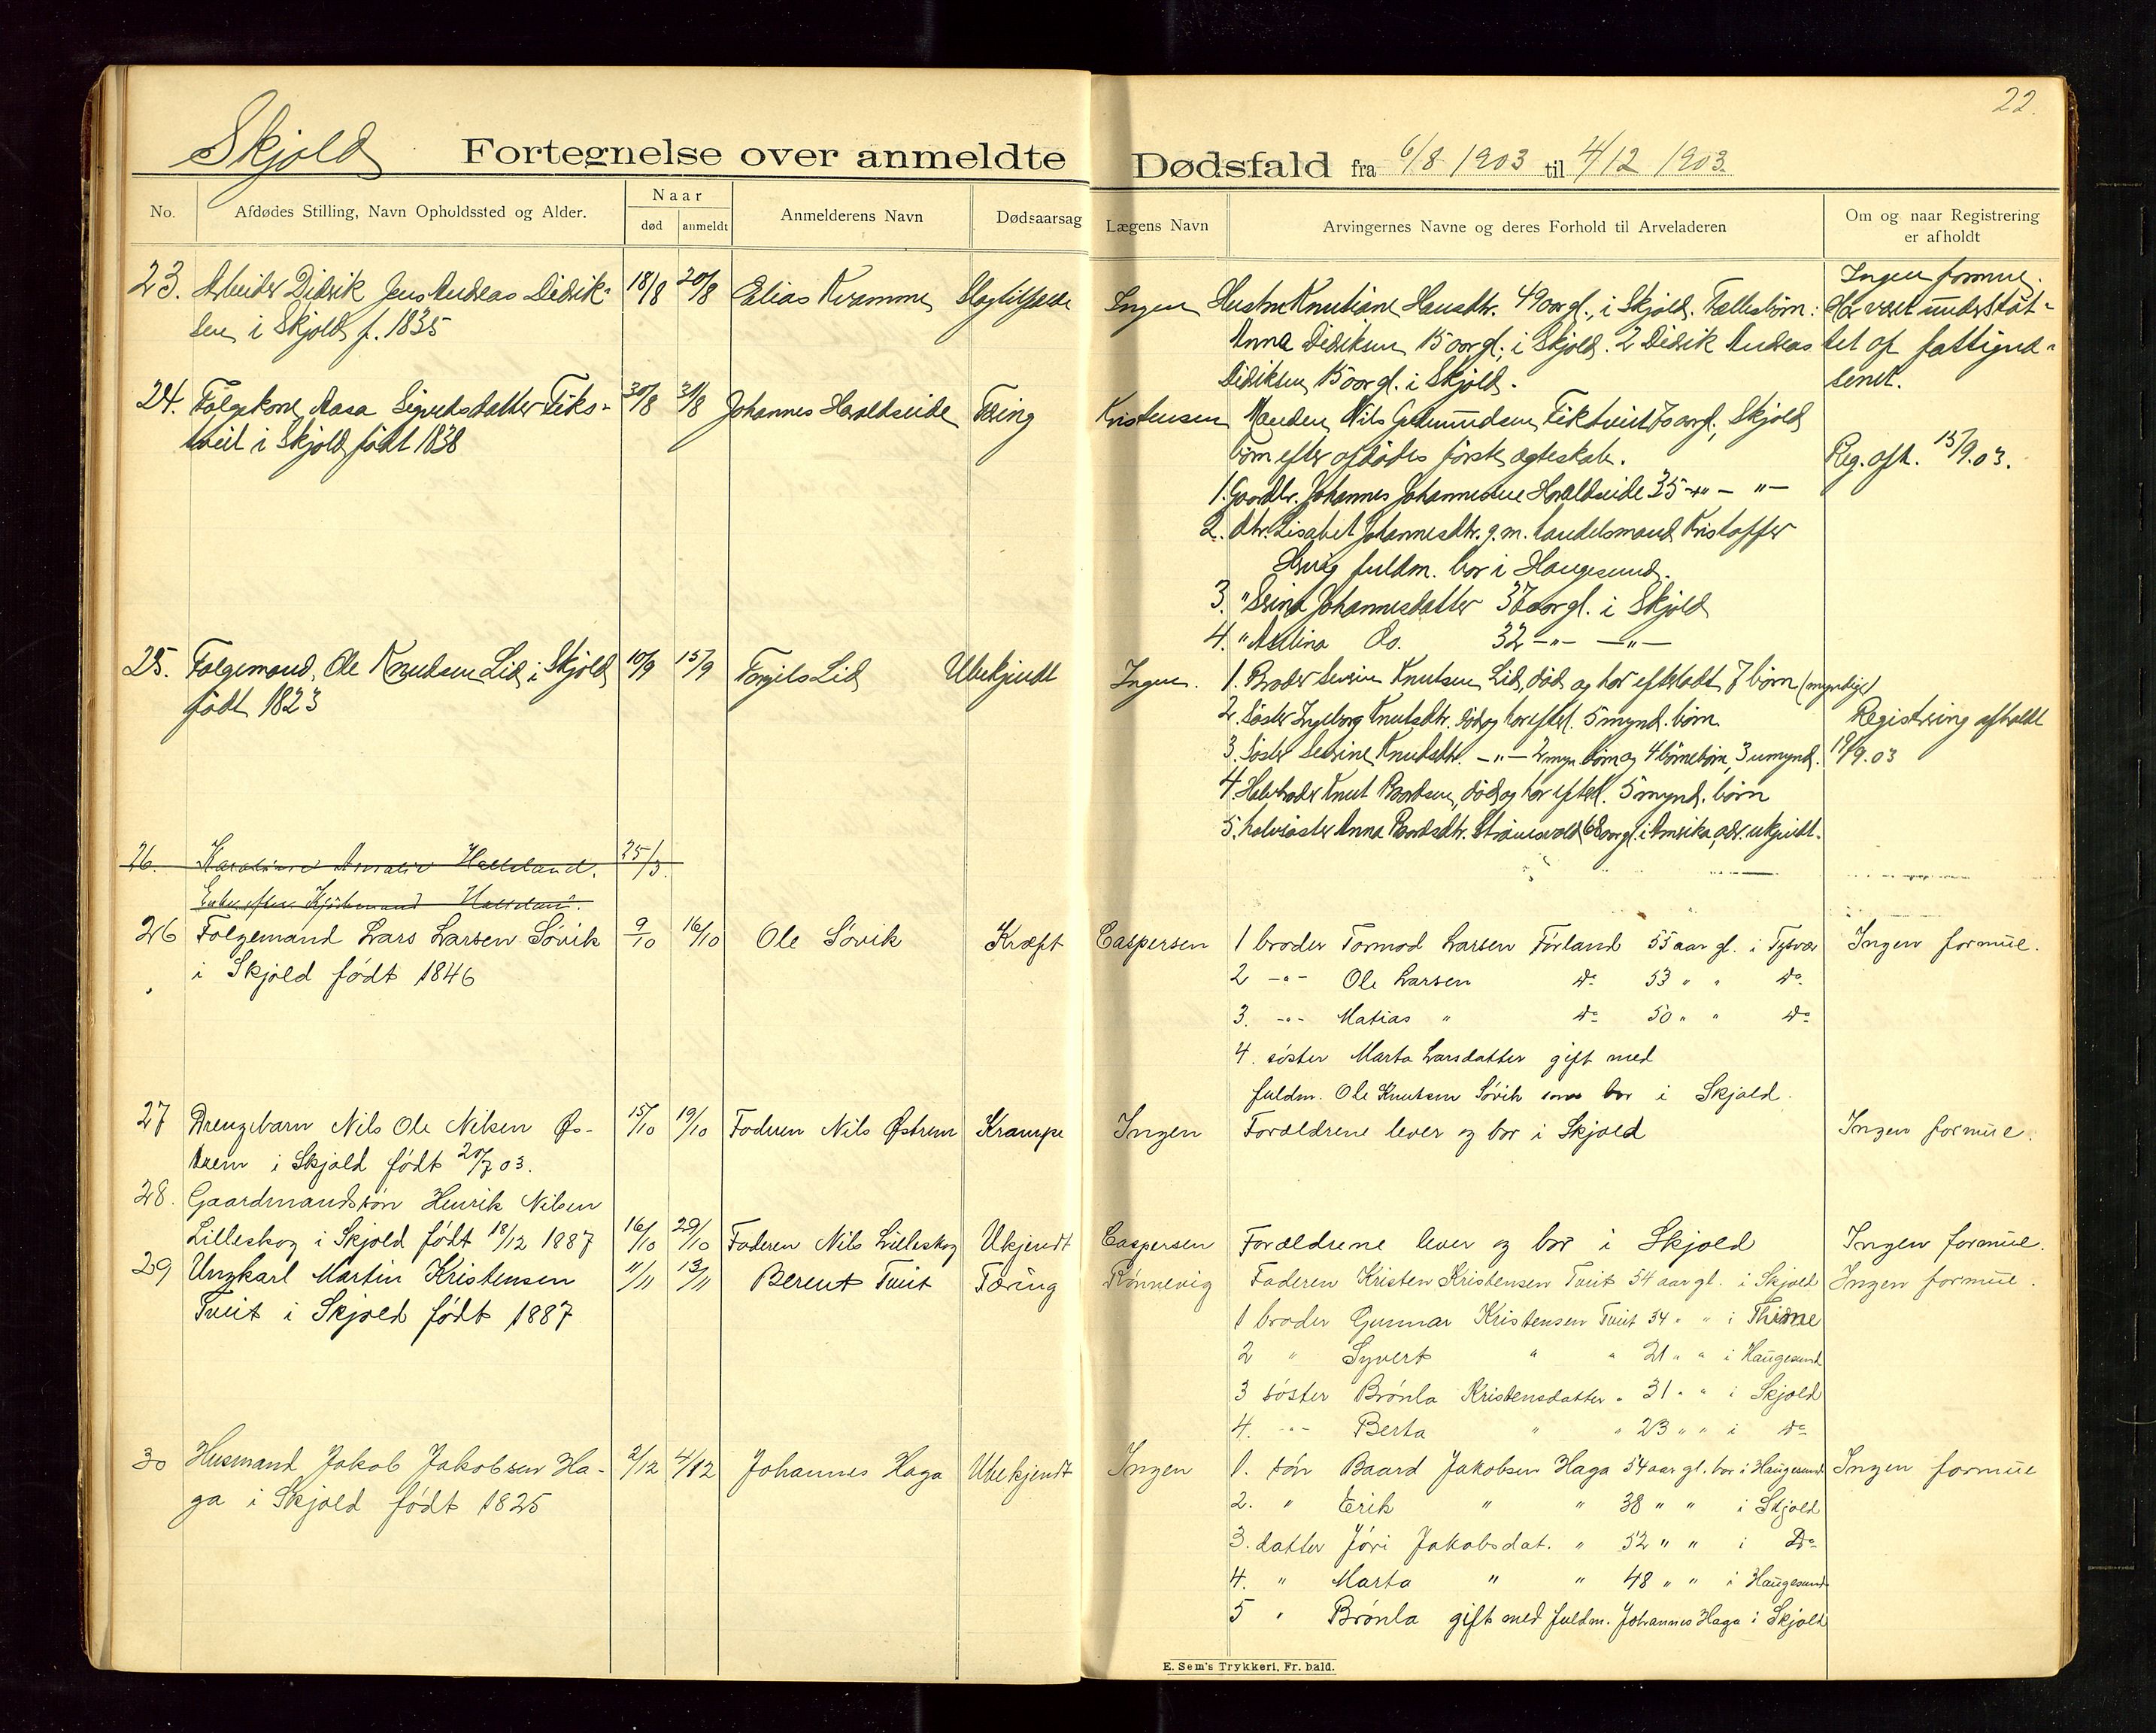 22.
Skjold Fortegnelse over anmeldte Dødsfald fra 6/8 1903 til 4/12 1903.
No.
Afdødes Stilling, Navn Opholdssted og Alder.
Naar
død
anmeldt
Anmelderens Navn
Dødsaarsag
Lægens Navn
Arvingernes Navne og deres Forhold til Arveladeren
Om og naar Registrering
er afholdt
23. Arbeider Didrik Jens Andreas Didrik- 18/8 20/8 Elias Kvamme Slagtilfælde Ingen Hustru Knutiane Hansdtr. 49 aar gl., i Skjold. Fællesbørn:
sen i Skjold f. 1835
Anna Didriksen 15 aar gl. i Skjold. 2 Didrik Andreas
Didriksen 15 aar gl. i Skjold.
Ingen formue.
Har været understøt-
tet af fattigvæ-
senet.
24. Følgekone Aasa Sigurdsdatter Fiks- 30/8 31/8 Johannes Haraldseide Tæring Kristensen Manden Nils Gudmundsen Fiktveit aar gl., Skjold
tveit i Skjold født 1838
børn efter afdødes første ægteskab.
Reg. afh. 15/9.03.
1. Gaardbr. Johannes Johannesen Haraldseide 35 -"- "-
2. dtr. Lisabet Johannesdtr. g.m. handelsmand Kristoffer
fuldm. bor i Haugesund.
3. " Serina Johannesdatter 37 aar gl. i Skjold
4. " Do. 32 -"- -"-
25. Følgemand. Ole Knudsen Lid i Skjold 10/9 15/9 Torgils Lid Ubekjendt Ingen. 1. Broder Severin Knutsen Lid, død og har efterladt 7 børn (myndige)
født 1823
2. Søster Ingeborg Knutsdtr. død og har efterl. 5 mynd. børn
Registrering afholdt
3. Søster Serine Knudsdtr. -"- 2 myn. børn og 4 børnebørn, 3 umynd. 19/9.03
4. Halvbroder Knut Baardsen, død og har efterl. 5 mynd. børn
5. halvsøster Anna Baardsdtr. 68 aar gl. i Amerika, adr. ukjendt.
26. Halleland. 25/3
Enke efter Kjøbmand
26 Følgemand Lars Larsen Søvik 9/10 16/10 Ole Søvik Kræft Caspersen 1 broder Tormod Larsen Førland 55 aar gl. i Tysvær Ingen formue.
i Skjold født 1846
2 -"- Ole Larsen do 53 " " do.
3. -"- Matias " do 50 " " do
4. søster Marta Larsdatter gift med
fuldm. Ole Knutsen Søvik som bor i Skjold.
27 Drengebarn Nils Ole Nilsen Øs- 15/10 19/10 Faderen Nils Østrem Krampe Ingen Forældrene lever og bor i Skjold Ingen formue.
trem i Skjold født 20/7 03.
28. Gaardmandssøn Henrik Nilsen
Lilleskog i Skjold født 18/12 1887 16/10 29/10 Faderen Nils Lilleskog Ukjendt Caspersen Forældrene lever og bor i Skjold Ingen formue.
29 Ungkarl Martin Kristensen 11/11 13/11 Berent Tveit Tæring Rønnevig Faderen Kristen Kristensen Tveit 54 aar gl. i Skjold Ingen formue.
Tveit i Skjold født 1887
1 broder Gunnar Kristensen Tveit 34 " " i
2 " Syvert " " 21 " " i Haugesund
3 søster Brønla Kristensdatter " 31 " " i Skjold
4. -"- Berta " " 23 " " i do
30 Husmand Jakob Jakobsen Ha- 2/12 4/12 Johannes Haga Ubekjendt Ingen 1. søn Baard Jakobsen Haga 54 aar gl. bor i Haugesund Ingen formue
ga i Skjold født 1825
2. " Erik " " 38 " " i Skjold
3. datter Jøri Jakobsdat. " 52 " " i Do
4. " Marta " " 48 " " i Haugesund
5 " Brønla gift med fuldm. Johannes Haga i Skjold
E. Sem's Trykkeri, Fr. hald.